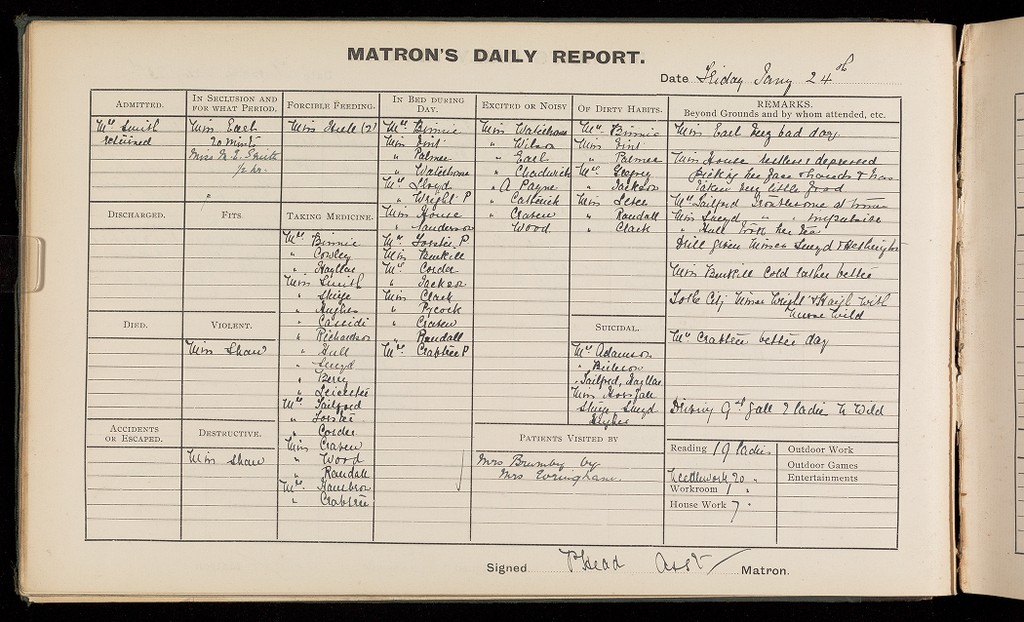 MATRON'S DAILY REPORT.
Date Friday Jany 24th
ADMITTED.
Mrs Smith
returned
IN SECLUSION AND
FOR WHAT PERIOD.
Miss Earl
20 mints
Miss M. E. Smith
1/2 hr.
"
FORCIBLE FEEDING.
Miss (2)
IN BED DURING
DAY.
Mrs Binnie
Miss
" Palmer
" Waterhouse
Mrs Lloyd
" Wright P
Miss House
" Sanderson
Mrs Forster P
Miss
Mrs Corder
" Jackson
Miss Clark
" Pycock
" Craven
" Randall
Mrs Crabtree P
EXCITED OR NOISY
Miss Waterhouse
" Wilson
" Earl
" Chadwick
" A Payne
" Catterick
" Craven
" Wood
OF DIRTY HABITS.
Mrs Binnie
Miss
" Palmer
Mrs
" Jackson
Miss
" Randall
" Clark
REMARKS.
Beyond Grounds and by whom attended, etc.
Miss Earl very bad day
Miss House restless & depressed
picking her face & hands & has
taken very little food
Mrs Tailford troublesome at times
Miss " " impulsive
" Hull took her tea
Drill given Misses & Hetherington
Miss cold rather better
to the City Misses Wright & Haigh with
Nurse Wild
Mrs Crabtree better day
Driving 7 ladies N Wild
DISCHARGED.
FITS.
TAKING MEDICINE.
Mrs Binnie
" Cowley
" Hayllar
Miss Smith
"
" Hughes
" Cassidi
" Richardson
" Hull
"
" Berry
" Leicester
Mrs Tailford
" Forster
" Corder
Miss Craven
" Wood
" Randall
Mrs
" Crabtree
DIED.
VIOLENT.
Miss Shaw
SUICIDAL.
Mrs Adamson
"
" Tailford, Hayllar
Miss Horsfall
Hughes
ACCIDENTS
OR ESCAPED.
DESTRUCTIVE.
Miss Shaw
PATIENTS VISITED BY
Mrs Brumby by
Mrs Everingham.
Reading 19 ladies
Needlework 20 "
Workroom 1 "
House Work 7 "
Outdoor Work
Outdoor Games
Entertainments
Signed P Head Asst Matron.